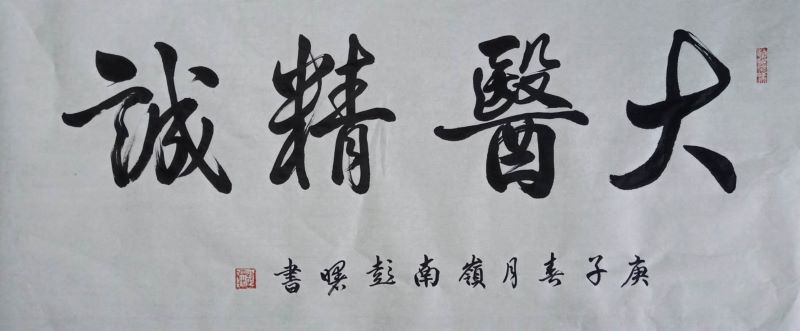 大醫精誠
庚子春月嶺南彭曙書